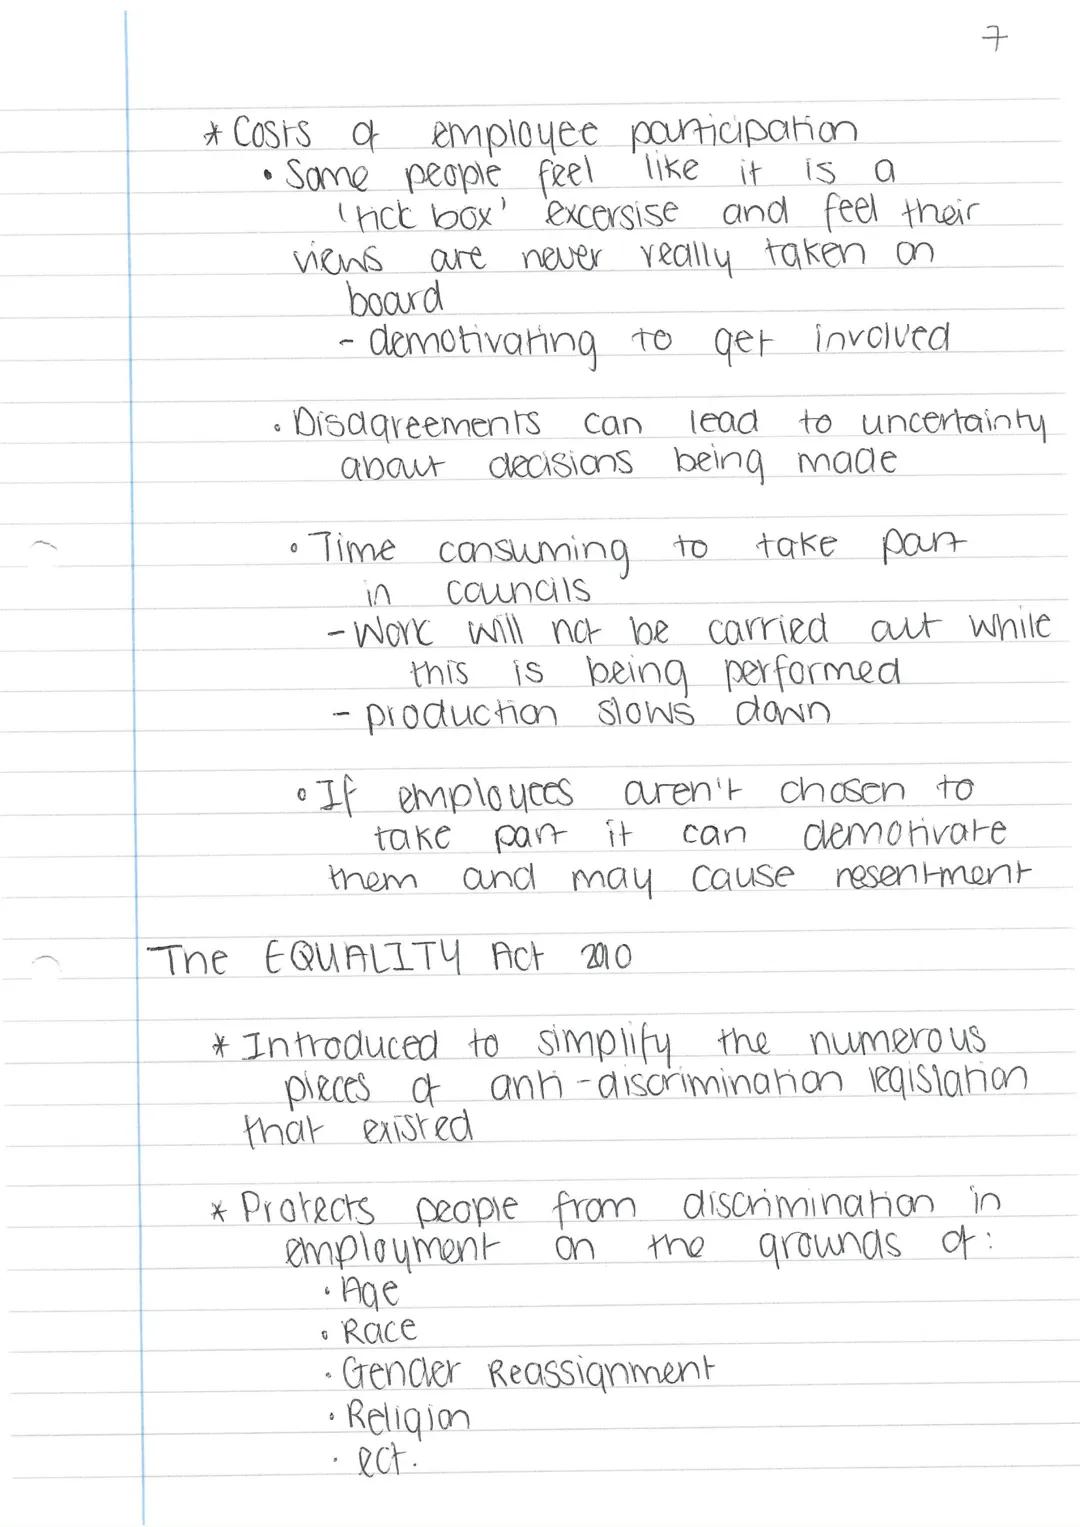 7
* Costs of employee participation
• Some people feel like it is a
'tick box' excersise and feel their
views are never really taken on
board
- demotivating to get involved
• Disagreements can lead to uncertainty
about decisions being made
• Time consuming to take part
in councils
- Work will not be carried out while
this is being performed
- production slows down
• If employees aren't chosen to
take part it can demotivate
them and may cause resentment
The EQUALITY Act 2010
* Introduced to simplify the numerous
pieces of anti-discrimination legislation
that existed
* Protects people from discrimination in
employment on the grounds of:
• Age
• Race
• Gender Reassignment
• Religion
• ect.